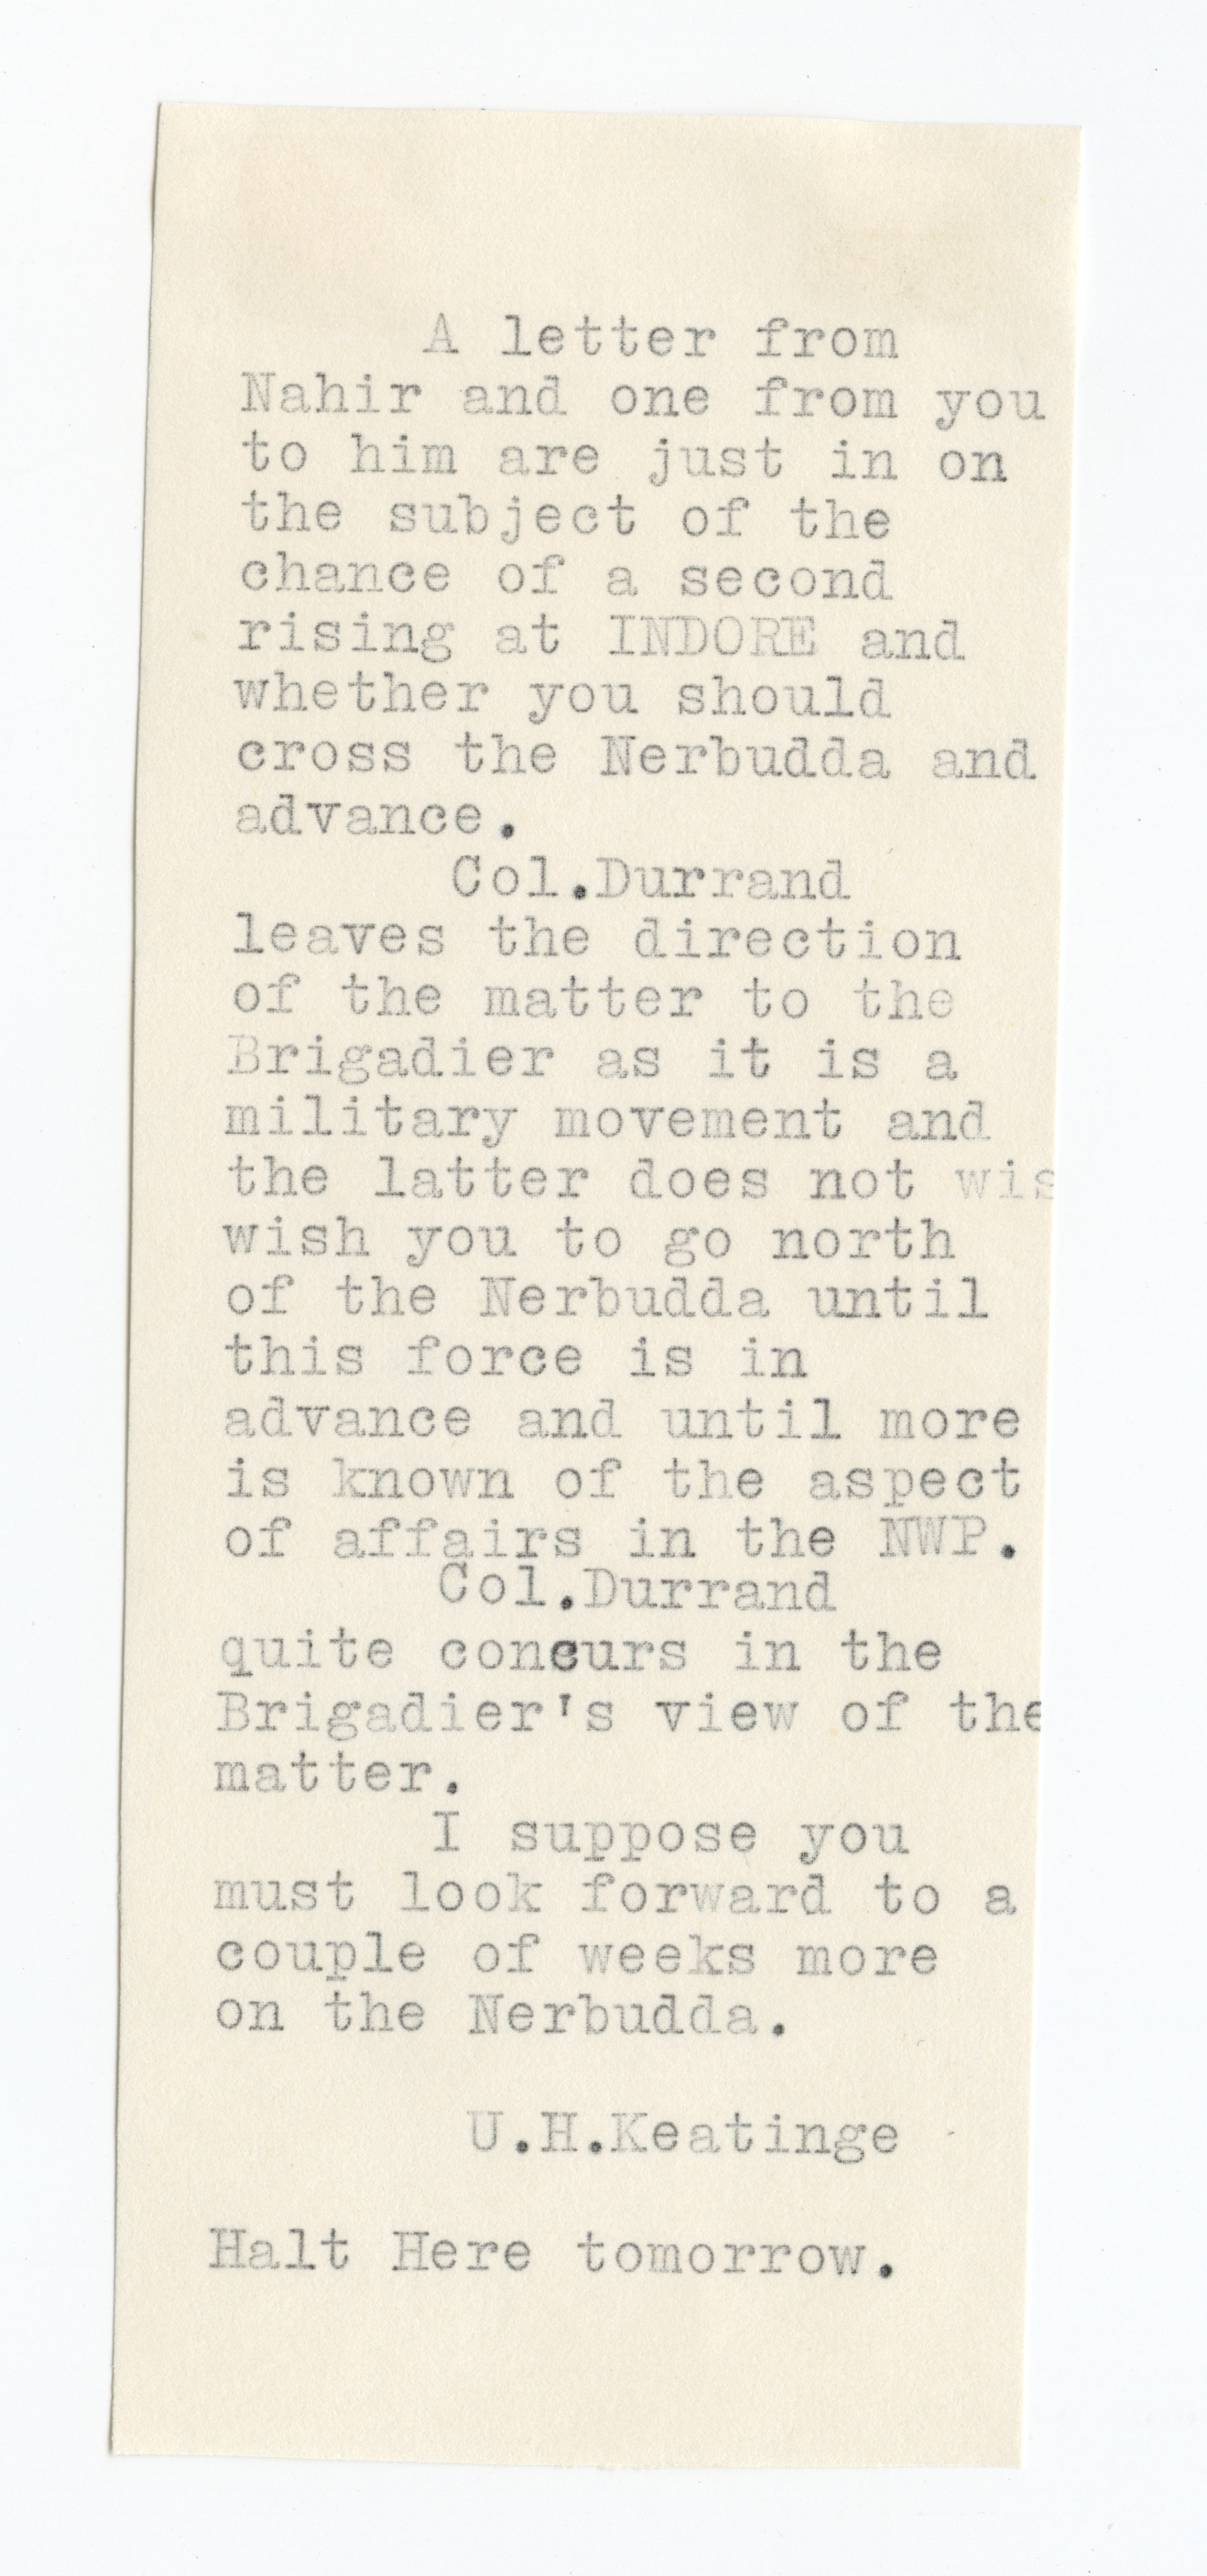 A letter from
Nahir and one from you
to him are just in on
the subject of the
chance of a second
rising at INDORE and
whether you should
cross the Nerbudda and
advance.
Col.Durrand
leaves the direction
of the matter to the
Brigadier as it is a
military movement and
the latter does not wis
wish you to go north
of the Nerbudda until
this force is in
advance and until more
is known of the aspect
of affairs in the NWP.
Col.Durrand
quite concurs in the
Brigadier's view of the
matter.
I suppose you
must look forward to a
couple of weeks more
on the Nerbudda.
U.H.Keatinge
Halt Here tomorrow.